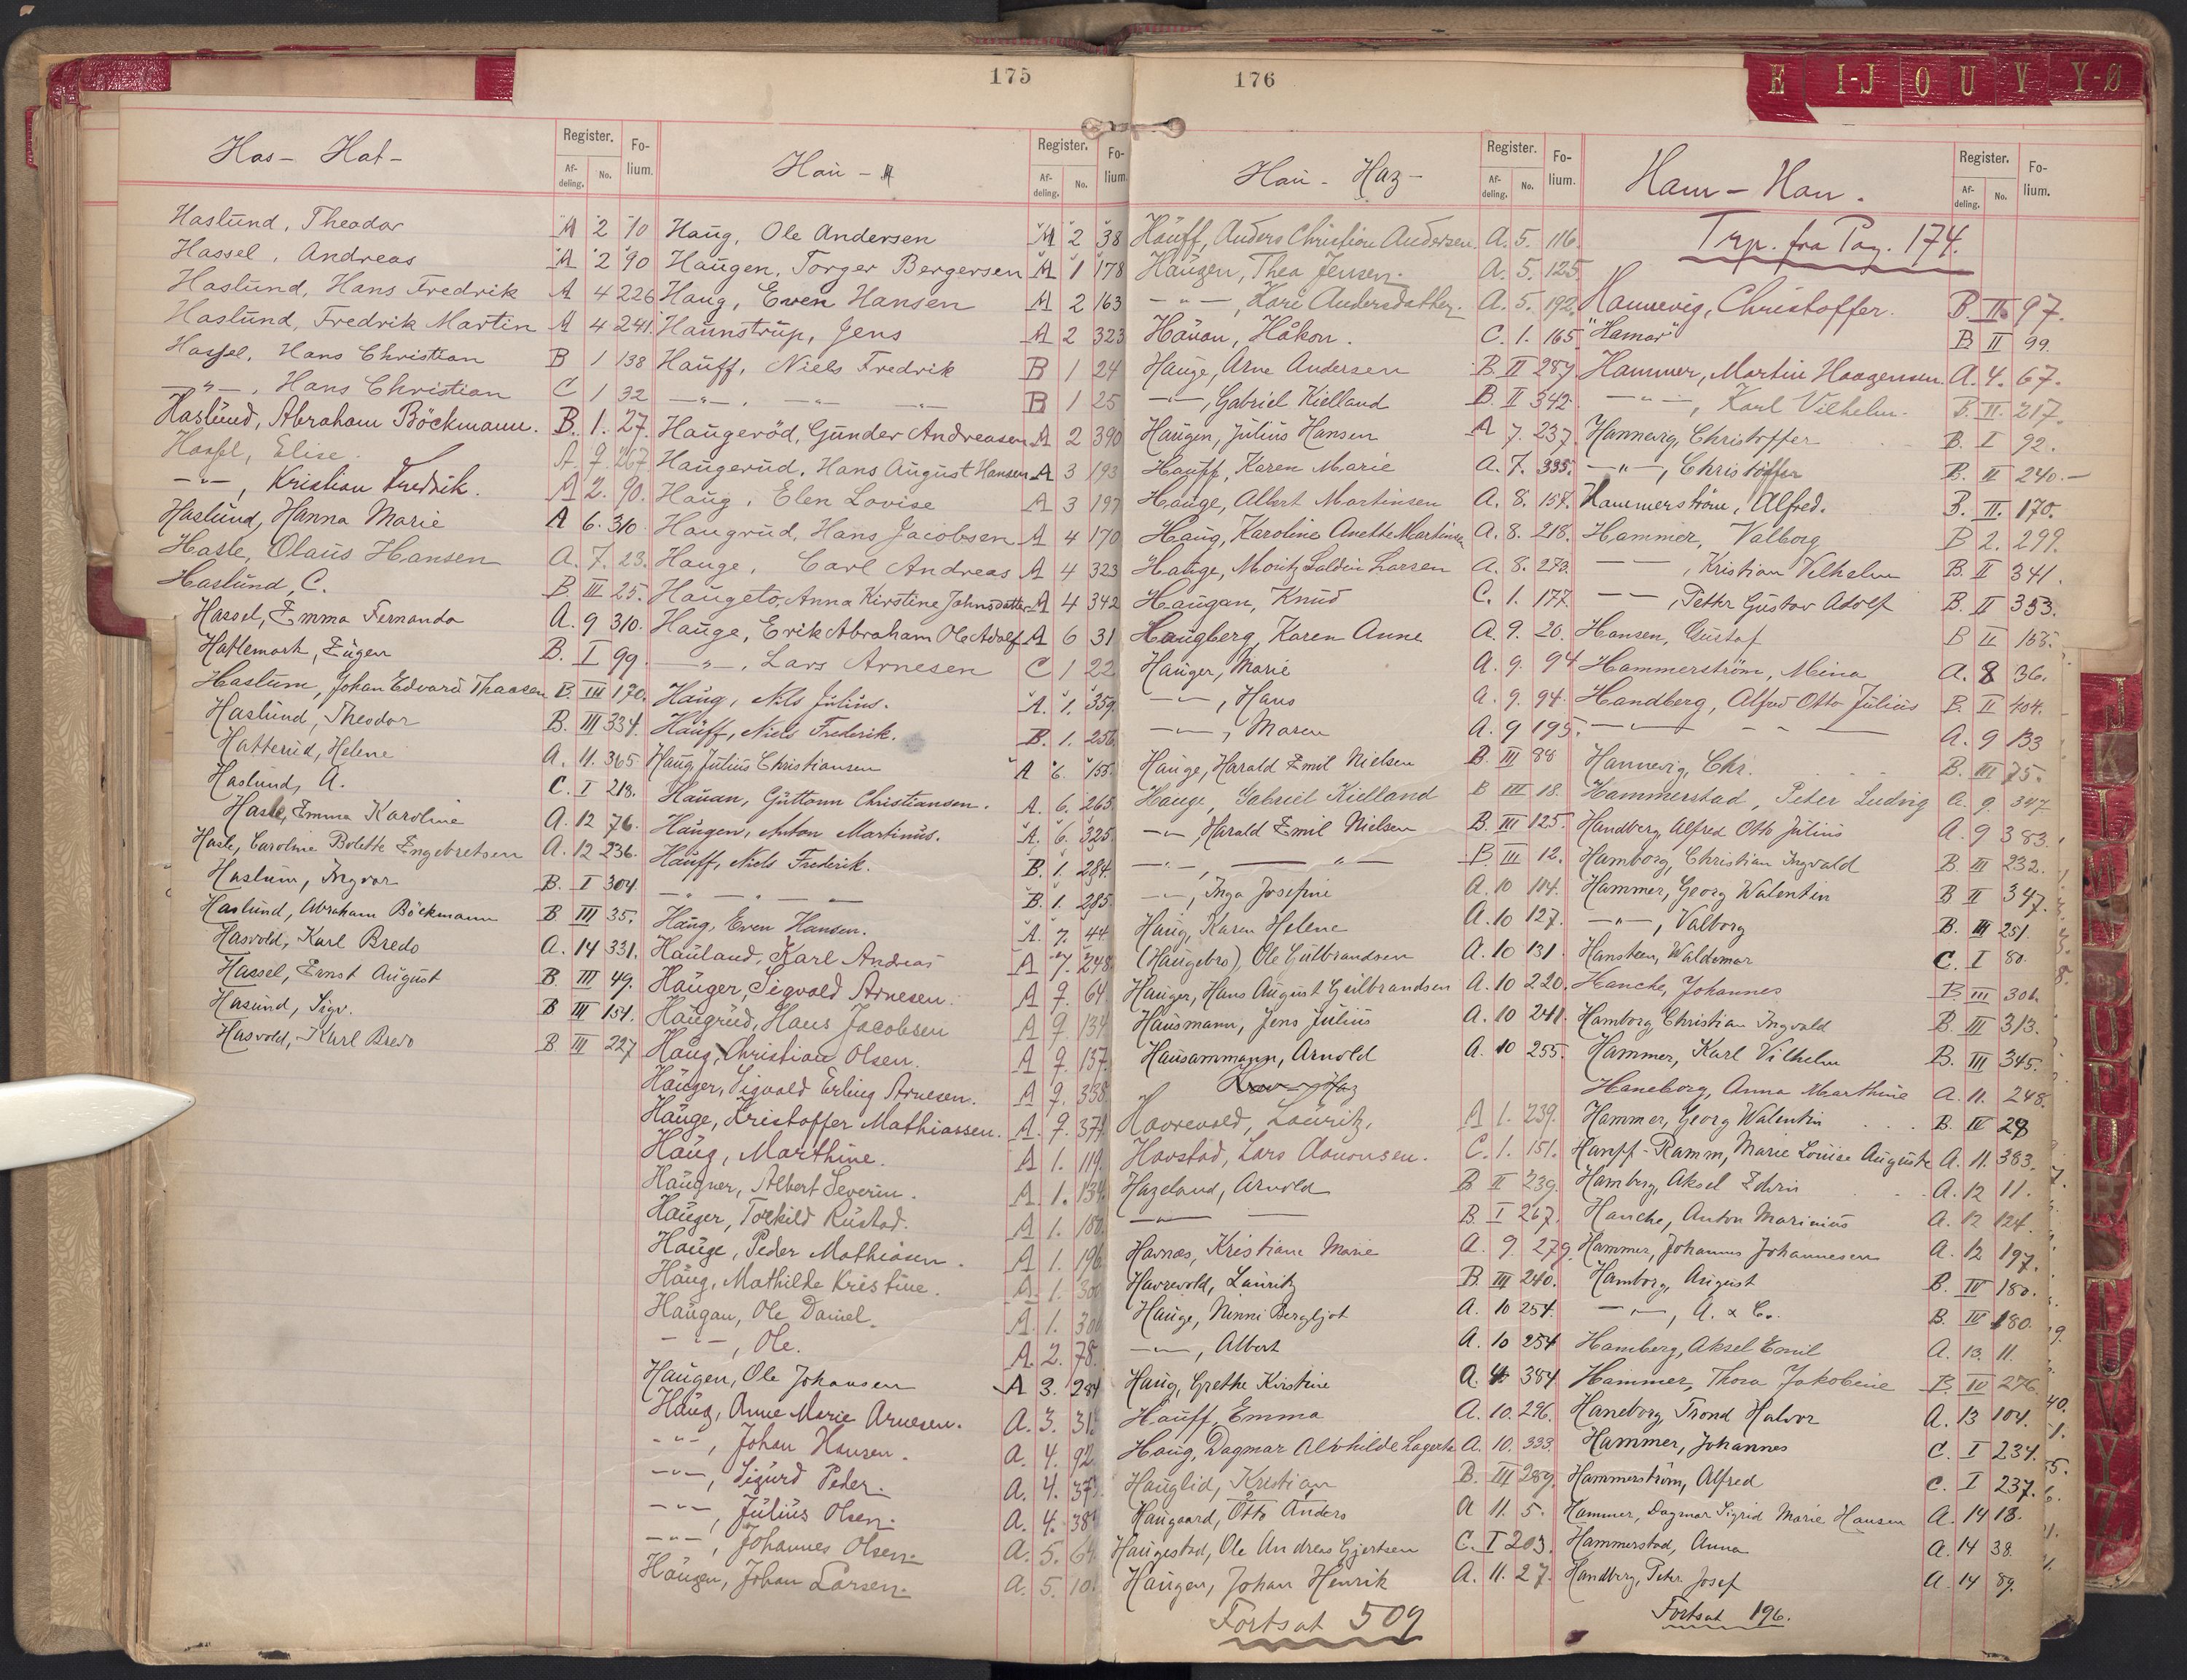 175
Has- Hat-
Register. Fo-
Af- No. lium.
deling.
Haslund, Theodor A 2 70
Hassel, Andreas A 2 90
Haslund, Hans Fredrik A 4 226
Haslund, Fredrik Martin A 4 241.
Hassel, Hans Christian B 1 138
—"—, Hans Christian C 1 32
Haslund, Abraham Böckmann. B. 1. 27.
Hassel, Elise. A. 7. 267
—"—, Kristian Fredrik. A 2. 90.
Haslund, Hanna Marie A 6. 310.
Hasle, Olaus Hansen A. 7. 23.
Haslund, C. B. III 25.
Hassel, Emma Fernanda A. 9 310.
Hattemark, Eugen B. I 99.
Haslum, Johan Edvard Thaasen B. III 170.
Haslund, Theodor B. III 334.
Hatterud, Helene A. 11. 365
Haslund, A. C. I 218.
Hasle, Emma Karoline A. 12 76.
Hasle, Caroline Bolette Engebretsen A. 12 236.
Haslum, Ingvar B. I 304.
Haslund, Abraham Böckmann B III 35.
Hasvold, Karl Bredo A. 14 331.
Hassel, Ernst August B III 49.
Hasund, Sigv. B III 151.
Hasvold, Karl Bredo B III 227
Hau -
Register. Fo-
Af- No. lium.
deling.
Haug, Ole Andersen A 2 38
Haugen, Torger Bergersen A 1 178
Haug, Even Hansen A 2 163
Haunstrup, Jens A 2 323
Hauff, Niels Fredrik B 1 24
—"—, —"— —"— B 1 25
Haugeröd, Gunder Andreasen A 2 390
Haugerud, Hans August Hansen A 3 193
Haug, Elen Lovise A 3 197
Haugrud, Hans Jacobsen A 4 170
Hauge, Carl Andreas A 4 323
Haugeto, Anna Kirstine Johnsdatter A 4 342
Hauge, Erik Abraham Ole Adolf A 6 31
—"—, Lars Arnesen C 1 22
Haug, Nils Julius. A. 1. 359.
Hauff, Niels Frederik. B. 1. 256
Haug, Julius Christiansen A 6. 155.
Hauan, Guttorm Christiansen. A. 6. 265
Haugen, Anton Martinus. A. 6. 325
Hauff, Niels Frederik. B. 1. 284.
— — — — B. 1. 285
Haug, Even Hansen. A. 7. 44
Hauland, Karl Andreas A 7. 248
Hauger, Sigvald Arnesen. A 7. 64
Haugrud, Hans Jacobsen A 7. 134
Haug, Christian Olsen. A 7. 157
Hauger, Sigvald Erling Arnesen. A 7. 338
Hauge, Kristoffer Mathiassen. A. 7. 371
Haug, Marthine. A 1. 119.
Haugner, Albert Severin. A. 1. 134.
Hauger, Torkild Rustad. A 1. 180.
Hauge, Peder Mathiasen. A 1. 196
Haug, Mathilde Kristine. A. 1. 300
Haugan, Ole Daniel. A. 1. 300
—"—, Ole. A. 2. 78.
Haugen, Ole Johansen A 3. 284
Haug, Anne Marie Arnesen. A. 3. 31
—"—, Johan Hansen. A. 4. 92.
—"—, Sigurd Peder. A. 4. 373.
—"—, Julius Olsen. A. 4. 38
—"—, Johannes Olsen. A. 5. 64
Haugen, Johan Larsen. A. 5. 10
176
Hau- Haz-
Register. Fo-
Af- No. lium.
deling.
Hauff, Anders Christian Andersen. A. 5. 116.
Haugen, Thea Jensen. A. 5. 125
—"—, Kari Andersdatter. A. 5. 192.
Hauan, Håkon. C. 1. 165
Hauge, Arne Andersen B. II 289
—"—, Gabriel Kielland B. II 342.
Haugen, Julius Hansen A 7. 237.
Hauff, Karen Marie A. 7. 335.
Hauge, Albert Martinsen A. 8. 154.
Haug, Karoline Anette Martinsen A. 8. 218.
Hauge, Moritz Laldin Larsen A. 8. 273.
Haugan, Knud C. 1. 177.
Haugberg, Karen Anne A. 9. 20.
Hauger, Marie A. 9. 94
—"—, Hans A. 9. 94.
—"—, Maren A. 9 195.
Hauge, Harald Emil Nielsen B. III 88
Hauge, Gabriel Kielland B III 18.
—"—, Harald Emil Nielsen B. III 125.
—"—, —"— B. III 12.
—"—, Inga Josefine A. 10 104.
Haug, Karen Helene A. 10 127.
(Haugebro), Ole Gulbrandsen A. 10 131
Hauger, Hans August Gulbrandsen A. 10 220.
Hausmann, Jens Julius A. 10 241.
Hausammann, Arnold A. 10 255.
Havrevold, Lauritz, A 1. 239.
Havstad, Lars Aanonsen. C. 1. 151.
Hazeland, Arnold B II 239.
—"— — B. I 267.
Havnås, Kristiane Marie A. 9. 279.
Havrevold, Lauritz B. III 240.
Hauge, Ninni Bergljot A. 10 254.
—"—, Albert A. 10 254
Haug, Grethe Kirstine A. 4. 384
Hauff, Emma A. 10. 296.
Haug, Dagmar Alvhilde Lagerta A. 10. 333.
Hauglid, Kristian B. III 289.
Haugaard, Otto Anders A 11. 5.
Haugestad, Ole Andreas Gjertsen C. I 203.
Haugen, Johan Henrik A. 11. 27.
Fortsat 509
Ham-Han.
Register. Fo-
Af- No. lium.
deling.
Trp. fra Pag. 174.
Hannevig, Christoffer. B. II 97.
"Hamar" B II 99.
Hammer, Martin Haagensen. A. 4. 67.
—"—, Karl Vilhelm. B. II. 217.
Hannevig, Christoffer B. I 92.
—"—, Christoffer B. II 240.-
Hammerström, Alfred. B. II. 170.
Hammer, Valborg B 2. 299.
—"—, Kristian Vilhelm B. II 341.
—"—, Petter Gustav Adolf B. II 353.
Hansen, Gustaf B II 168.
Hammerström, Mina A. 8 36.
Handberg, Alfred Otto Julius B. II 404.
— — — — A. 9 133
Hannevig, Chr. B. III 75.
Hammerstad, Peter Ludvig A. 9 347
Handberg Alfred Otto Julius A. 9 383.
Hamborg, Christian Ingvald B. III 232.
Hammer, Georg Walentin B II 347.
—"—, Valborg B. III 251.
Hansteen, Waldemar C. I 80.
Hanche, Johannes B. III 306.
Hamborg Christian Ingvald B. III 313.
Hammer, Karl Vilhelm B. III 345.
Haneborg, Anna Marthine A. 11. 248.
Hammer, Georg Walentin B. IV 28
Hanff-Ramm, Marie Louise Auguste A. 11. 383.
Hamberg, Aksel Edvin A. 12 11.
Hanche, Anton Marinius A. 12 124.
Hammer, Johannes Johannesen A. 12 197.
Hamborg, August B. IV 180.
—"—, A. & Co. B. IV 180.
Hamberg, Aksel Emil A. 13. 11.
Hammer, Thora Jakobine B. IV 276.
Haneborg, Trond Halvor A. 13 104.
Hammer, Johannes C. I 234.
Hammerström, Alfred C. I 237.
Hammer, Dagmar Sigrid Marie Hansen A. 14 18.
Hammerstad, Anna A. 14 38.
Handberg, Peter Josef A. 14 89.
Fortsat 196.
E I-J O U V Y-Ø
J
K
L
M
N
O
P
U
R
T
U
V
Y
Z